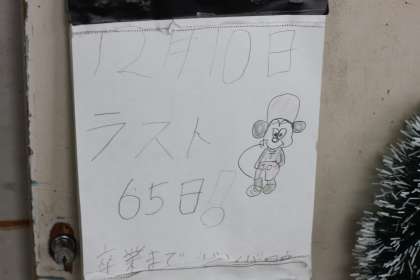 12月10日
ラスト
65日!
卒業まで